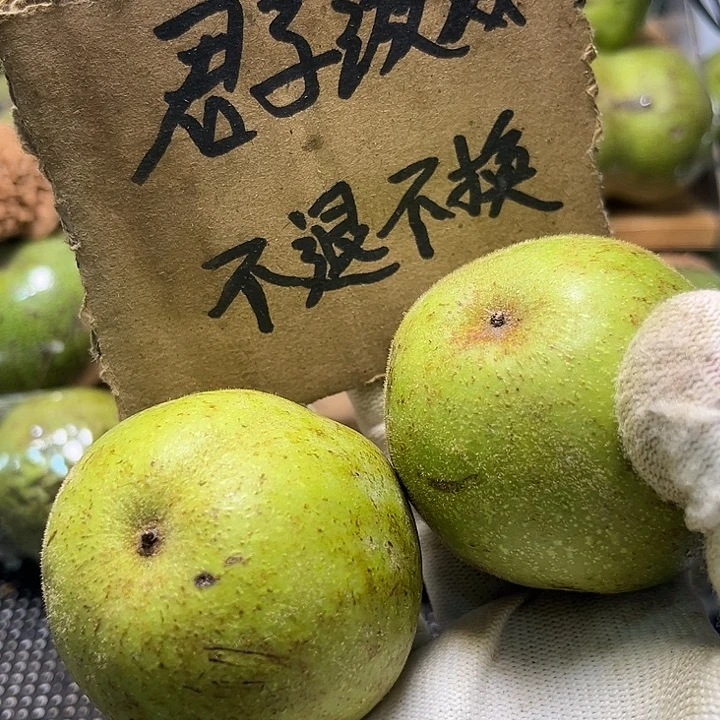 君子
不退不换